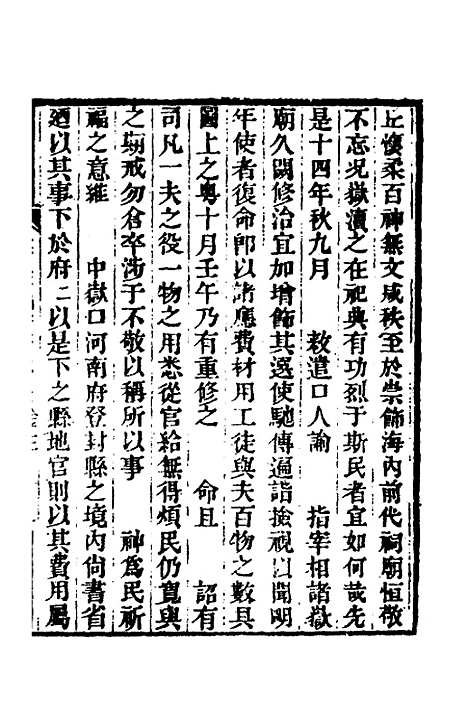 丘懷柔百神無文咸秩至於崇飾海內前代祠廟恒敬
不忘况嶽瀆之在祀典有功烈于斯民者宜如何哉先
是十四年秋九月 敕遣口人諭 指宰相諸嶽
廟久闕修治宜加增飾其選使馳傳遍詣撿視以聞明
年使者復命卽以諸應費材用工徒與夫百物之數具
圖上之粵十月壬午乃有重修之 命且 詔有
司凡一夫之役一物之用悉從官給無得煩民仍寬與
之期戒勿倉卒涉于不敬以稱所以事 神爲民祈
福之意維 中嶽口河南府登封縣之境內尙書省
廼以其事下於府二以是下之縣地官則以其費用屬